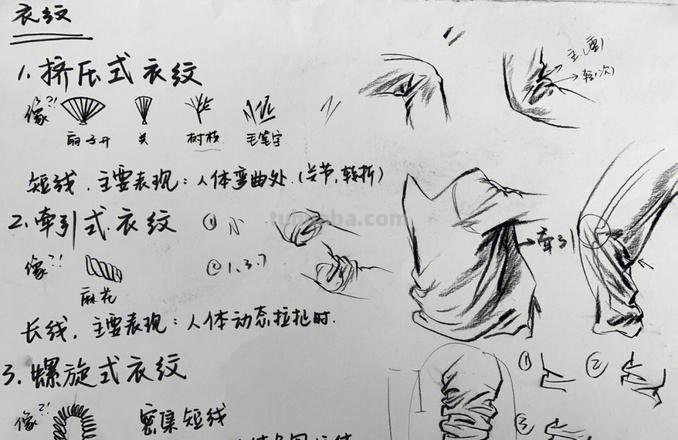 衣纹
1.挤压式衣纹
主(重)
轻(次)
像?!
扇子开 关 树枝 毛笔字
短线,主要表现:人体弯曲处.(关节,转折)
2.牵引式衣纹 ① ②
像?!
麻花
牵引
tuquba.com
长线,主要表现:人体动态拉扯时.
3.螺旋式衣纹
① ② ③
像?!
密集短线